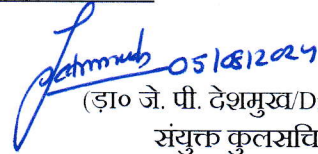 05/08/2024
(ड़ा० जे. पी. देशमुख/D
संयुक्त कुलसचि